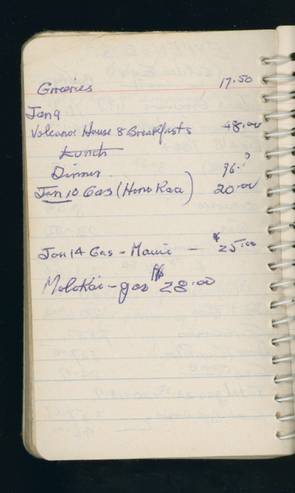 Groceries 17.50
Jan 9
Volcanoe House 8 Breakfasts 48.00
Lunch
Dinner 96.
Jan 10 Gas (Hono Kaa) 20.00
Jan 14 Gas - Maui - $25.00
Molokai - gas $28.00